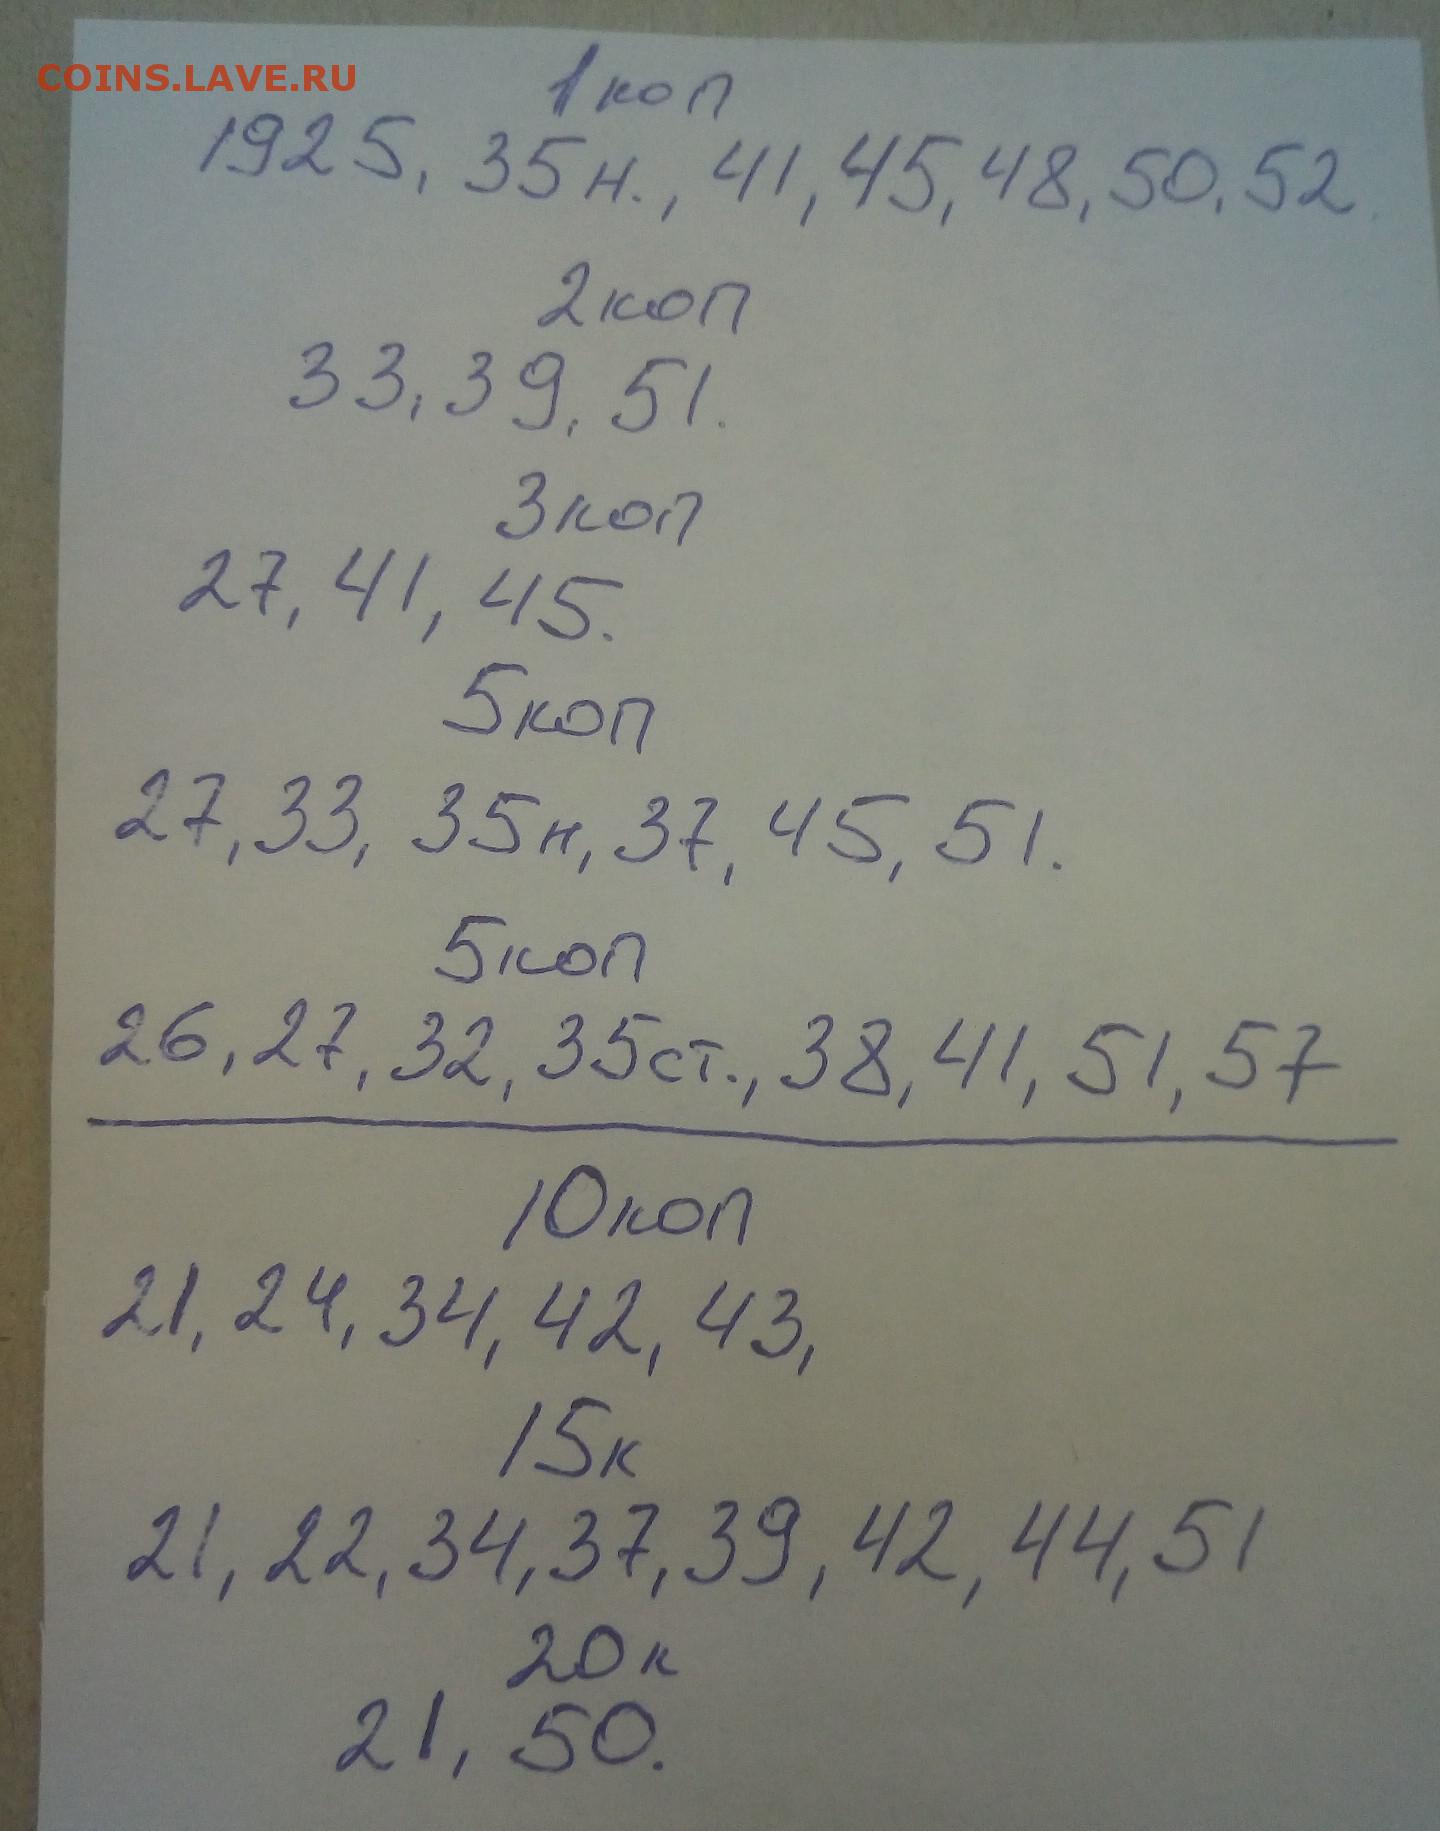 COINS.LAVE.RU
1 коп
1925, 35 н., 41, 45, 48, 50, 52.
2 коп
33, 39, 51.
3 коп
27, 41, 45.
5 коп
27, 33, 35 н, 37, 45, 51.
5 коп
26, 27, 32, 35 ст., 38, 41, 51, 57
10 коп
21, 24, 34, 42, 43,
15 к
21, 22, 34, 37, 39, 42, 44, 51
20 к
21, 50.